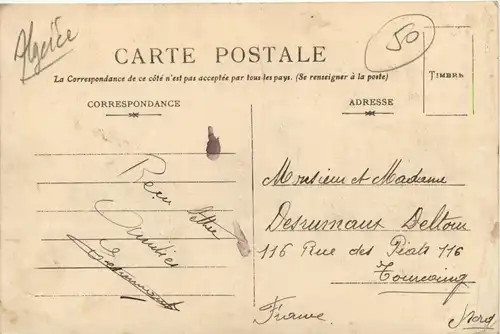 Algérie
50
CARTE POSTALE
La Correspondance de ce côté n'est pas acceptée par tous les pays. (Se renseigner à la poste)
TIMBRE
CORRESPONDANCE
ADRESSE
Amitiés
Monsieur et Madame
Desrumaux Deltour
116 Rue des Piats 116
Tourcoing
France
Nord